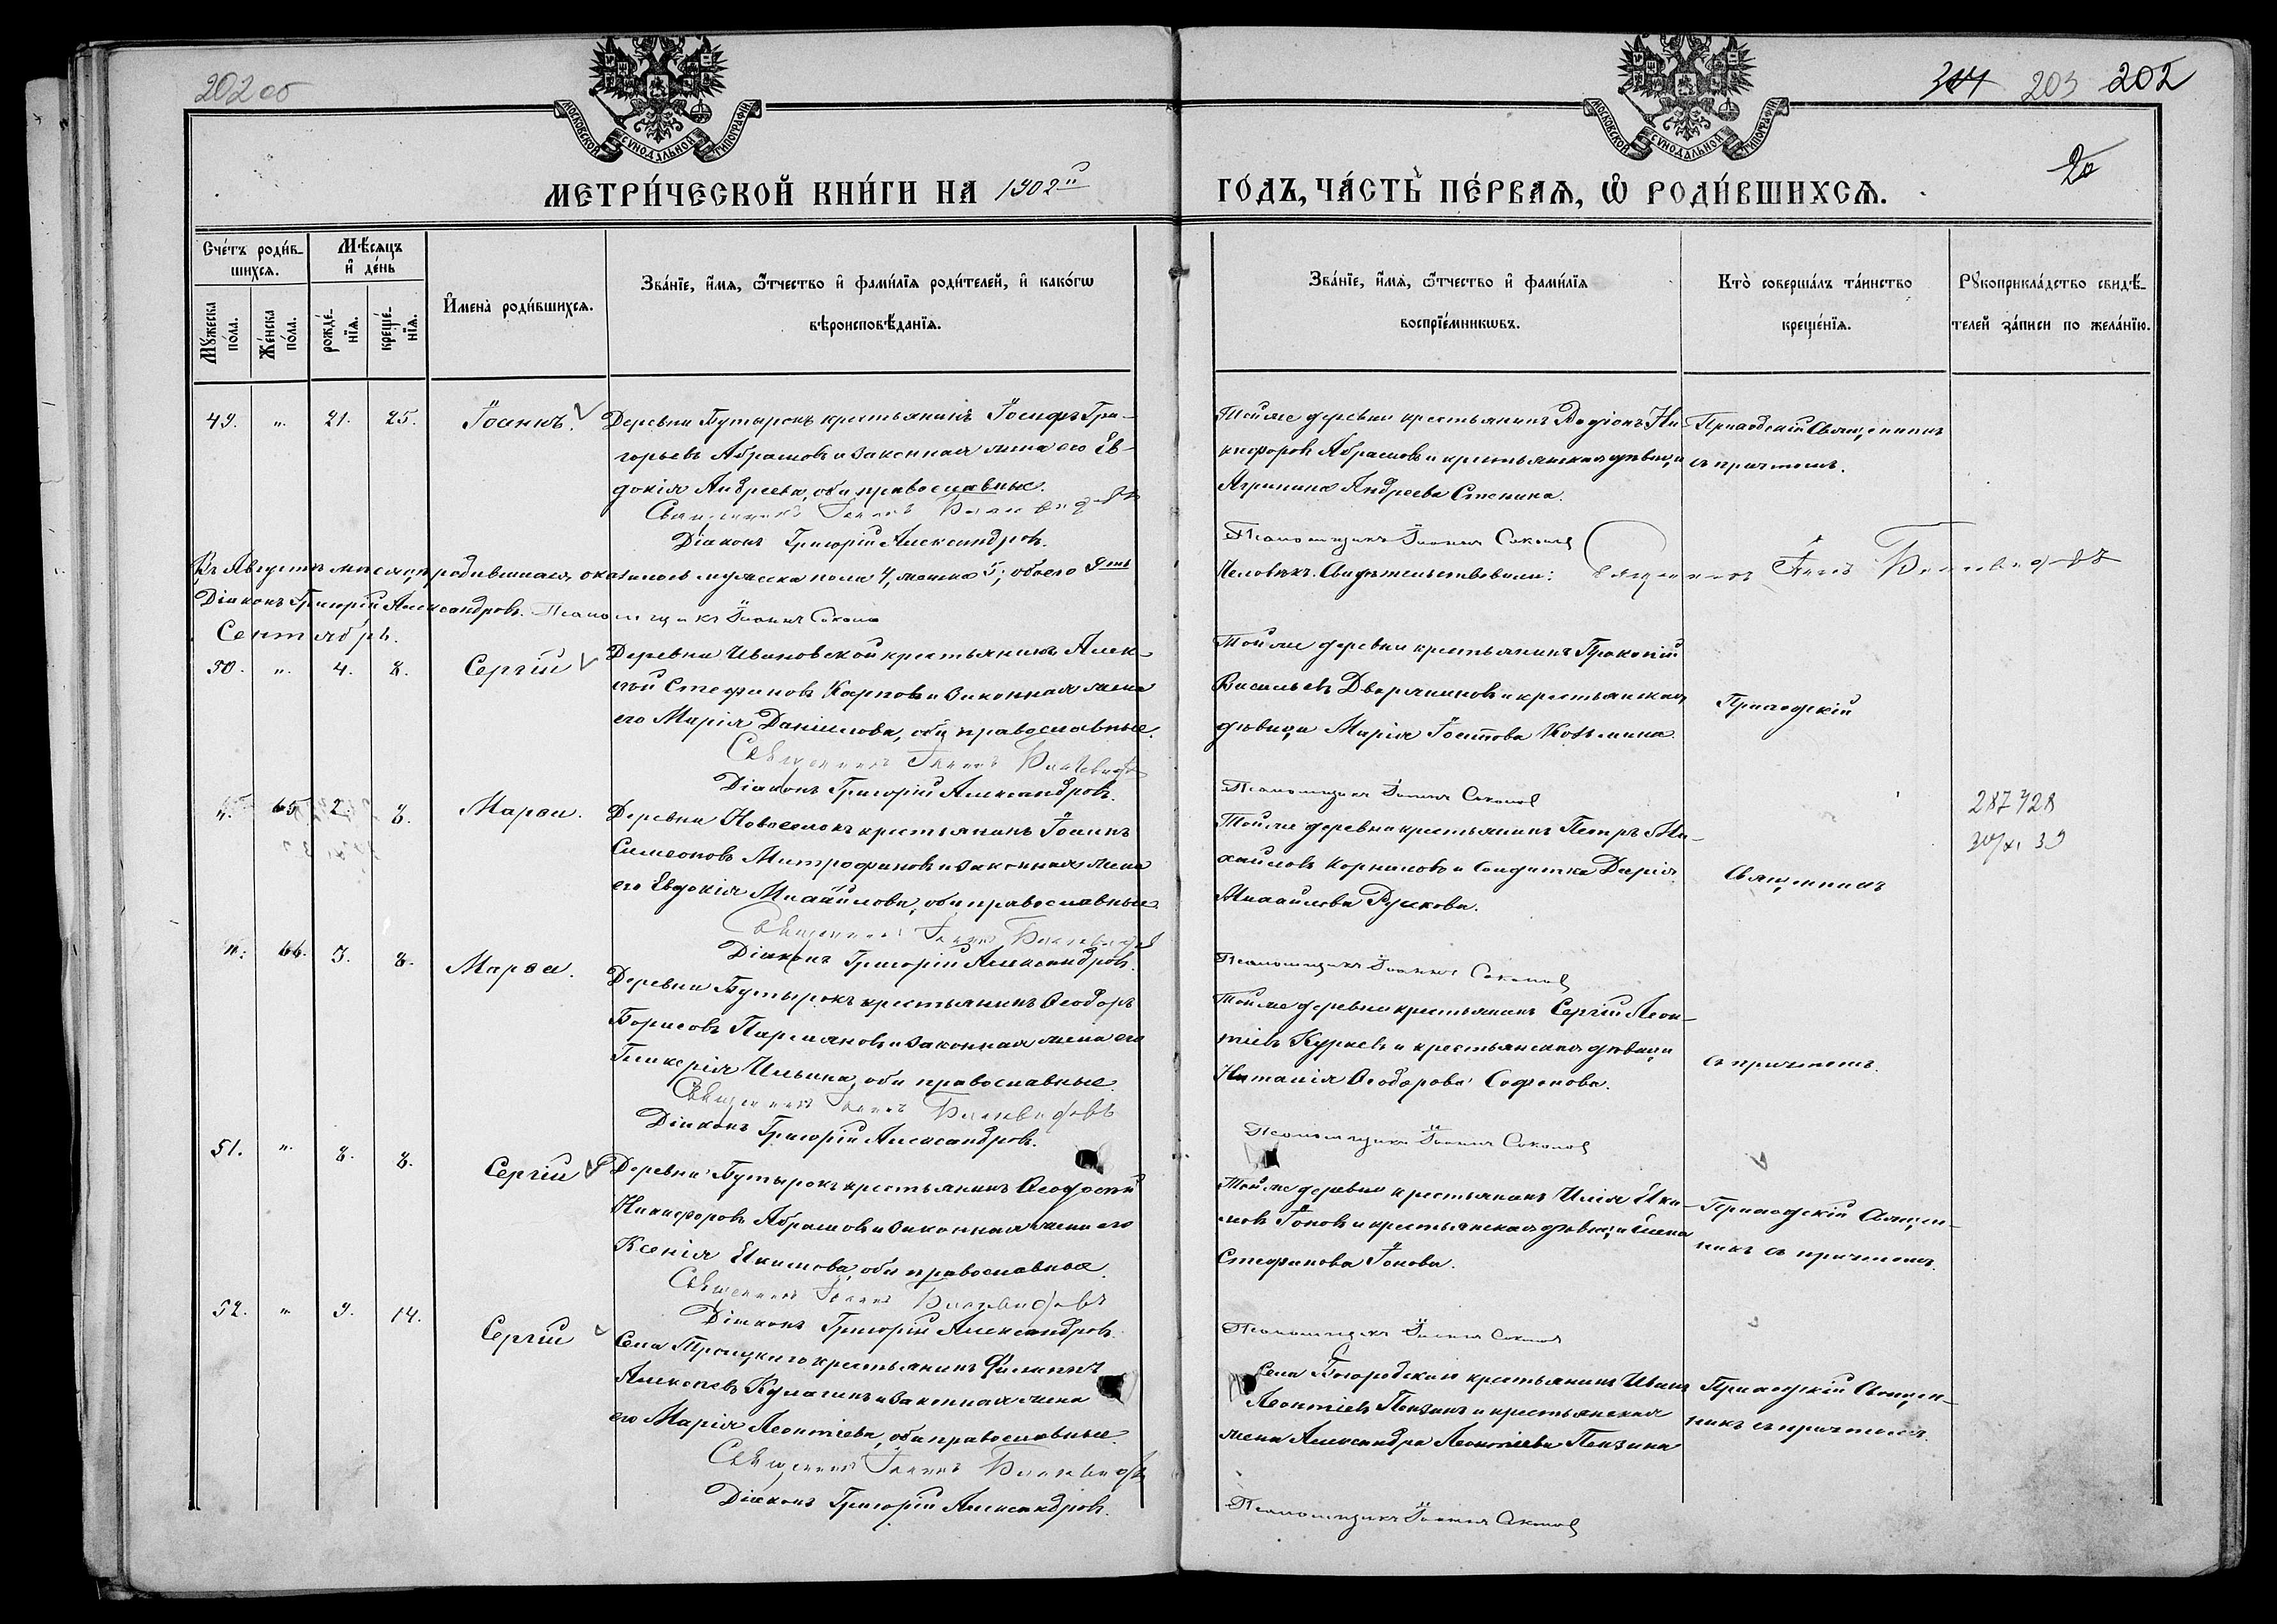 202 об
203 202
20
МОСКОВСКОЙ СУНОДАЛЬНОЙ ТИПОГРАФІИ
МОСКОВСКОЙ СУНОДАЛЬНОЙ ТИПОГРАФІИ
МЕТРИ́ЧЕСКОЙ КНИ́ГИ НА 1902й
ГО́ДЪ, ЧА́СТЬ ПЕ́РВАѦ, Ѡ РОДИ́ВШИХСѦ.
Сче́тъ роди́в-
шихсѧ.
Мѣ́сяцъ
и҆ де́нь
Мꙋ́жеска
по́ла.
Же́нска
по́ла.
рожде́-
нїѧ.
креще́-
нїѧ.
И҆мена̀ роди́вшихсѧ.
Зва́нїе, и҆́мѧ, ѻ҆́тчество и҆ фами́лїѧ роди́телей, и҆ како́гѡ
вѣроисповѣ́данїѧ.
Зва́нїе, и҆́мѧ, ѻ҆́тчество и҆ фами́лїѧ
воспрїе́мникѡвъ.
Кто̀ соверша́лъ та́инство
креще́нїѧ.
Рꙋкоприкла́дство свидѣ́-
телей за́писи по жела́нїю.
49. „ 21. 25. Іоаннъ.
Деревни Бутырокъ крестьянинъ Іосифъ Гри-
горьевъ Абрамовъ и законная жена его Ев-
докія Андреева, оба православные.
Священникъ Іоаннъ
Діаконъ Григорій Александровъ.
Тойже деревни крестьянинъ Родіонъ Ни-
кифоровъ Абрамовъ и крестьянская дѣвица
Агрипина Андреева Стенина.
Псаломщикъ Іоаннъ Соколов
Приходскій Священникъ
съ причтомъ.
Въ Августѣ мѣсяцѣ родившихся оказалось мужеска пола 4, женска 5; обоего 9ть
Человѣкъ. Свидѣтельствовали: Священникъ Іоаннъ
Діаконъ Григорій Александровъ. Псаломщикъ Іоаннъ Соколов
Сентябрь.
50. „ 4. 8. Сергій
Деревни Ивановской крестьянинъ Алек-
сѣй Стефановъ Карповъ и законная жена
его Марія Даніилова, оба православные.
Священникъ Іоаннъ
Діаконъ Григорій Александровъ.
Тойже деревни крестьянинъ Прокопій
Васильевъ Дворяниновъ и крестьянская
дѣвица Марія Козьмина.
Псаломщикъ Іоаннъ Соколов
Приходскій
„ 65 2. 8. Марѳа.
Деревни Новоселокъ крестьянинъ Іоаннъ
Симеоновъ Митрофановъ и законная жена
его Евдокія Михаилова, оба православные.
Священникъ Іоаннъ
Діаконъ Григорій Александровъ.
Тойже деревни крестьянинъ Петръ Ми-
хаиловъ Корниловъ и солдатка Дарія
Михаилова
Псаломщикъ Іоаннъ Соколов
Священникъ
287428
30/XI 39
„ 66. 3. 8. Марѳа.
Деревни Бутырокъ крестьянинъ Ѳеодоръ
Борисовъ и законная жена его
Гликерія Ильина, оба православные.
Священникъ Іоаннъ
Діаконъ Григорій Александровъ.
Тойже деревни крестьянинъ Сергій Леон-
тіевъ и крестьянская дѣвица
Наталія Ѳеодорова
Псаломщикъ Іоаннъ Соколов
съ причтомъ.
51. „ 8. 8. Сергій
Деревни Бутырокъ крестьянинъ Ѳеодосій
Никифоровъ Абрамовъ и законная жена его
Ксенія Екимова, оба православные.
Священникъ Іоаннъ
Діаконъ Григорій Александровъ.
Тойже деревни крестьянинъ Илія Еки-
мовъ Іоновъ и крестьянская дѣвица Елена
Стефанова Іонова.
Псаломщикъ Іоаннъ Соколов
Приходскій Священ-
никъ съ причтомъ.
52. „ 9. 14. Сергій
Села Троицкаго крестьянинъ Филиппъ
Алексѣевъ Кулагинъ и законная жена
его Марія Леонтіева, оба православные.
Священникъ Іоаннъ
Діаконъ Григорій Александровъ.
Села Богородскаго крестьянинъ Иванъ
Леонтіевъ Пензинъ и крестьянская
жена Александра Леонтіева Пензина
Псаломщикъ Іоаннъ Соколов
Приходскій Священ-
никъ съ причтомъ.